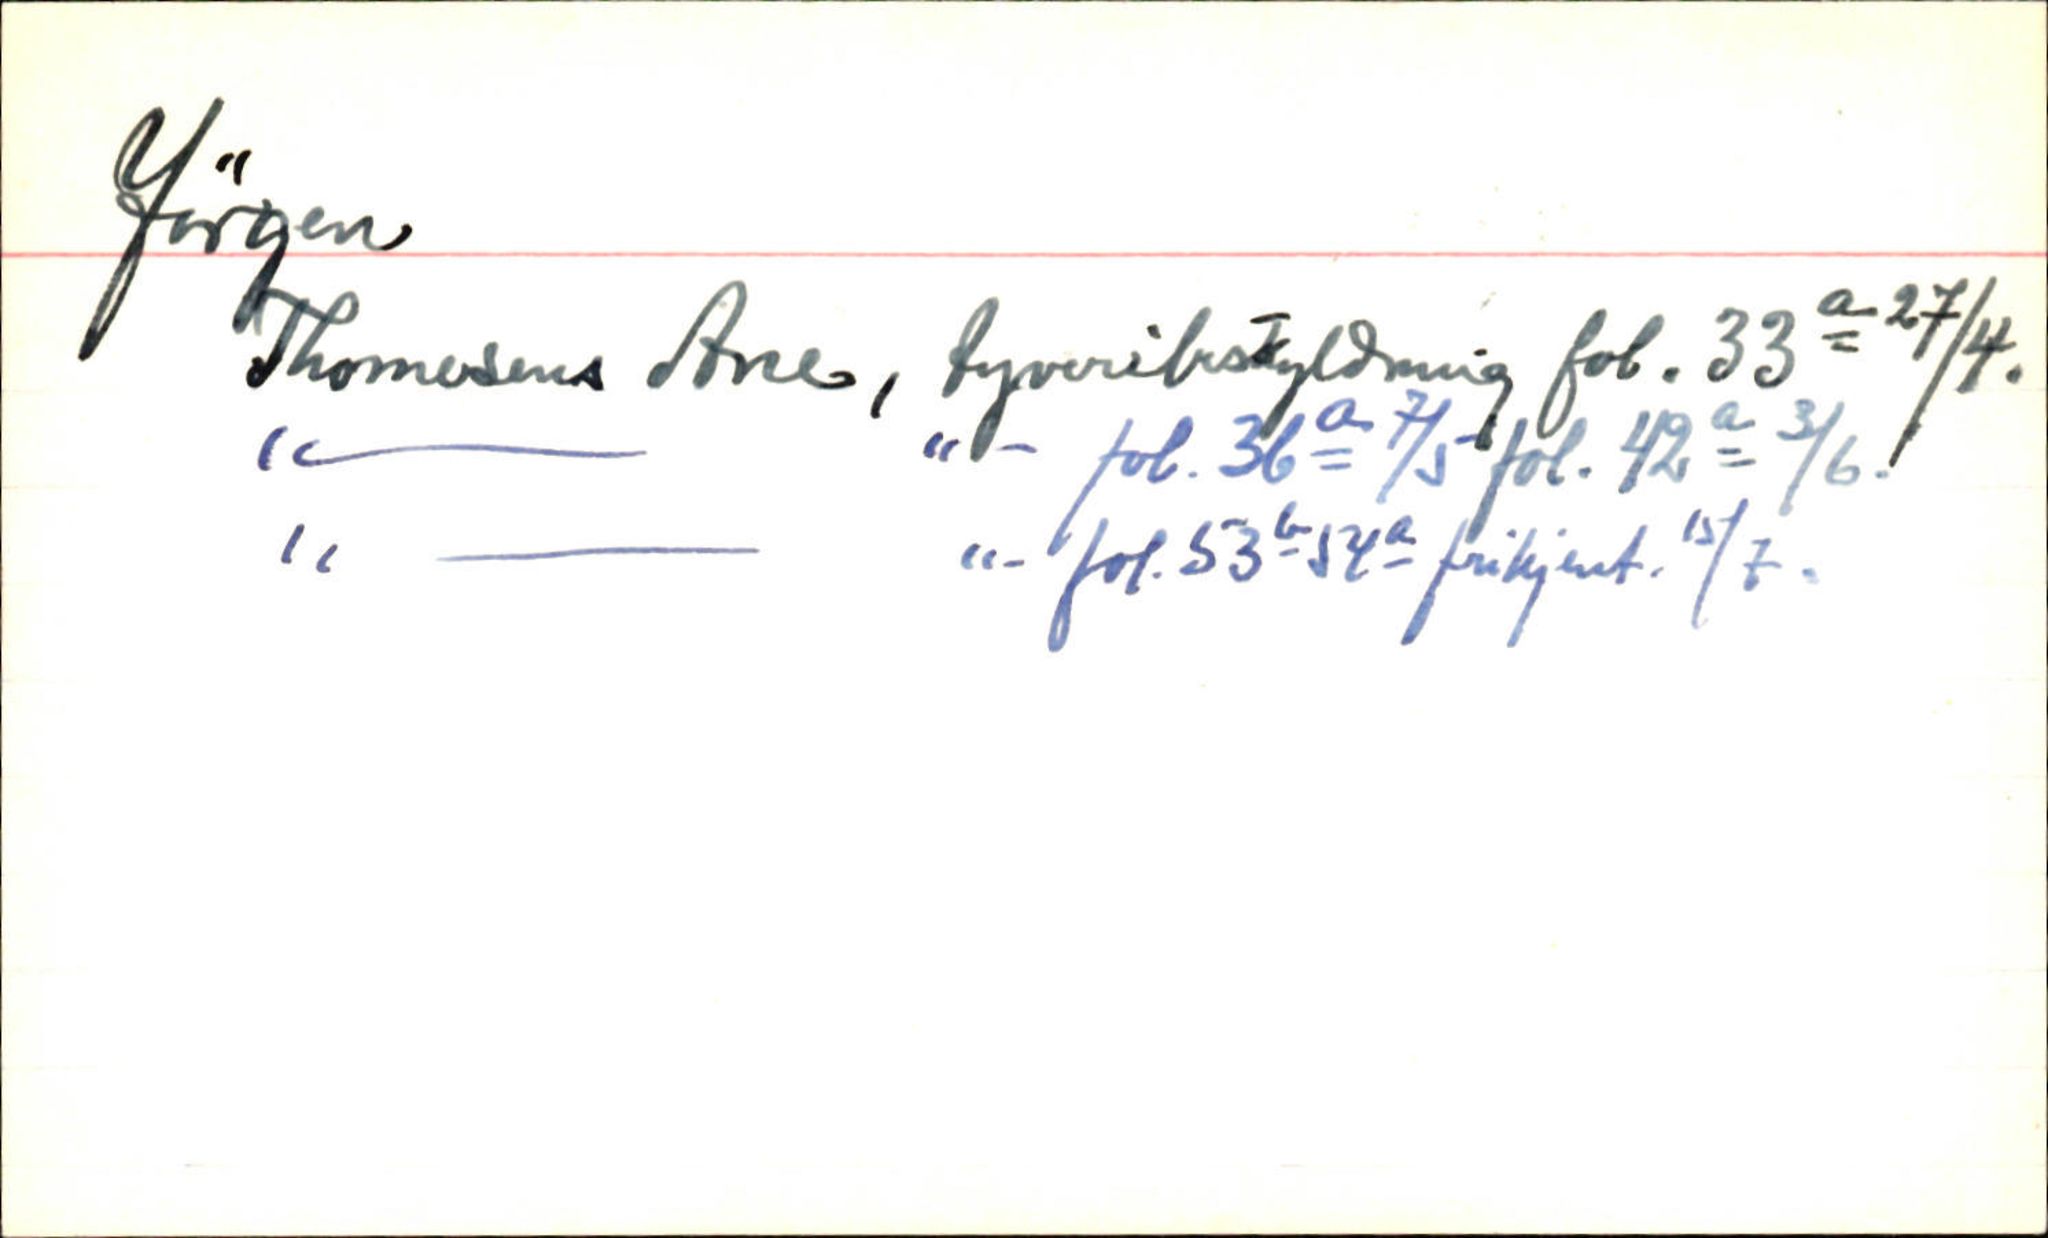 Jörgen
Thomesens Ane, tyveribeskyldning fol. 33a 27/4.
"———— " - fol. 36a 7/5 fol. 42a 3/6.
" ———— " - fol. 53b-54a frikjent. 15/7.